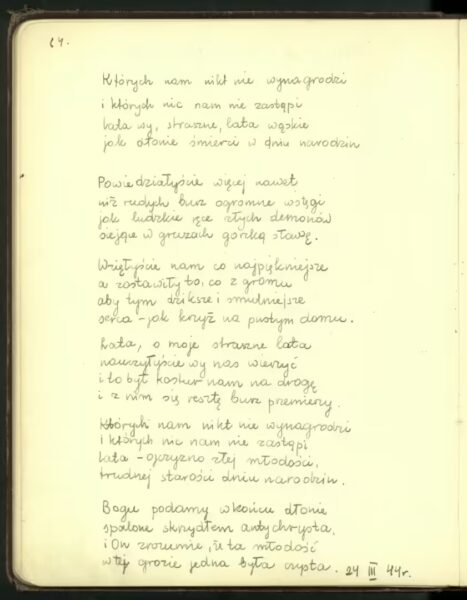 64.
Których nam nikt nie wynagrodzi
i których nic nam nie zastąpi
lata wy, straszne, lata wąskie
jak dłonie śmierci w dniu narodzin
Powiedziałyście więcej nawet
niż rudych burz ogromne wstęgi
jak ludzkie ręce złych demonów
siejące w gruzach gorzką sławę.
Wzięłyście nam co najpiękniejsze
a zostawiły to, co z gromu
aby tym dziksze i smutniejsze
serca - jak krzyż na pustym domu.
Lata, o moje straszne lata
nauczyłyście wy nas wierzyć
i to był kostur nam na drogę
i z nim się resztę burz przemierzy.
Których nam nikt nie wynagrodzi
i których nic nam nie zastąpi
lata - ojczyzno złej młodości,
trudnej starości dniu narodzin.
Bogu podamy w końcu dłonie
spalone skrzydłem antychrysta,
i On zrozumie, że ta młodość
w tej grozie jedna była czysta. 24 III 44r.